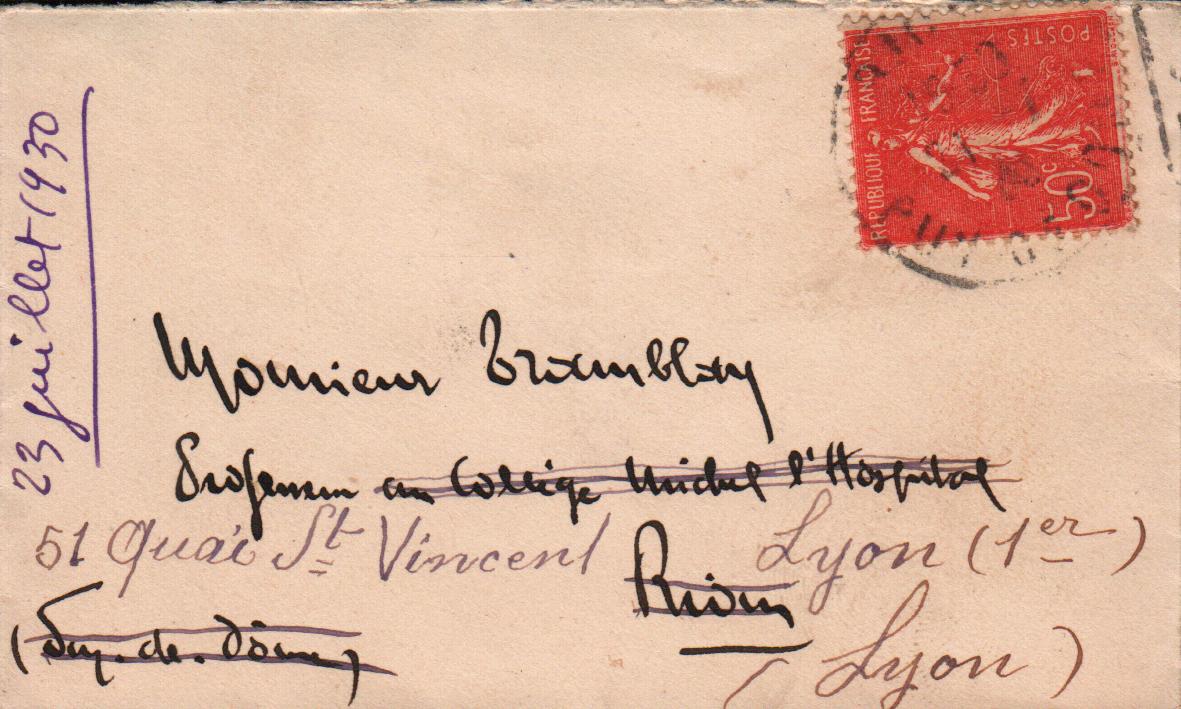 23 juillet 1930
REPUBLIQUE FRANÇAISE
POSTES
50 c
PUY DE DO
Monsieur Tramblay
Professeur au Collège Michel l'Hospital
51 Quai St Vincent Lyon (1er)
Riom
(Puy-de-Dôme)
(Lyon)